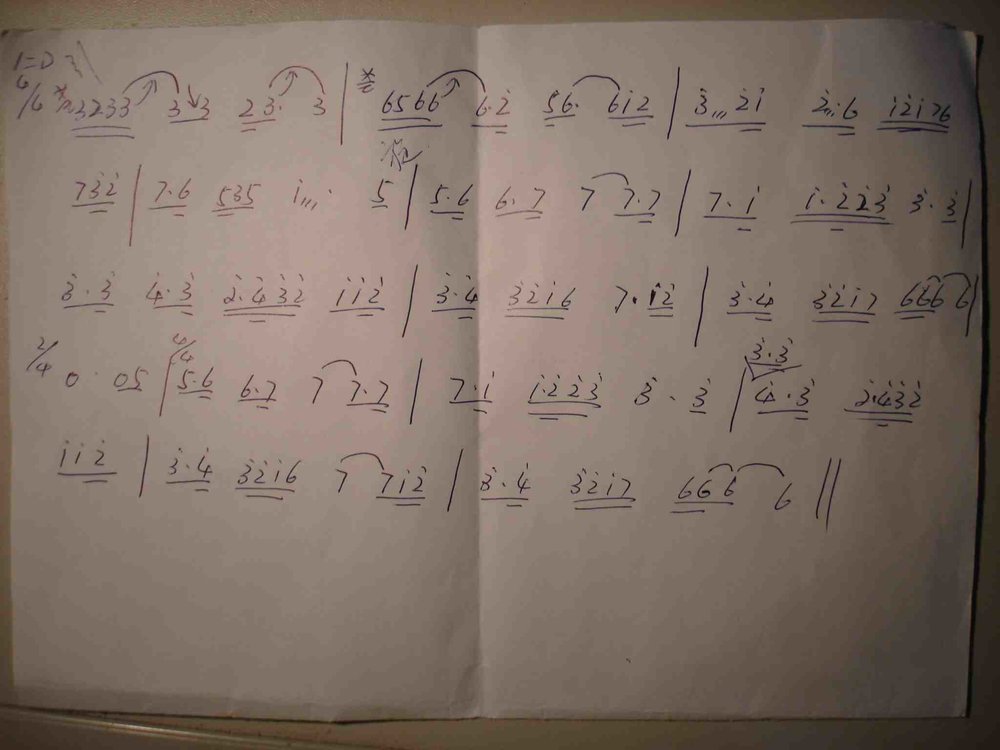 1=D
4/4 3233 3 3 23· 3 | 6566 6·2̇ 56· 6i2̇ | 3̇,,, 2̇i 2̇,,,6 i2̇i76
73̇2̇ | 7·6 535 i,,,· 5 | 5·6 6·7 7 7·7 | 7·i i·2̇2̇3̇ 3̇·3̇ |
3̇·3̇ 4̇·3̇ 2̇·4̇3̇2̇ ii2̇ | 3̇·4̇ 3̇2̇i6 7·i2̇ | 3̇·4̇ 3̇2̇i7 666 6 |
2/4 0 · 05 | 4/4 5·6 6·7 7 7·7 | 7·i i·2̇2̇3̇ 3̇ · 3̇ | 3̇·3̇ 4̇·3̇ 2̇·4̇3̇2̇
ii2̇ | 3̇·4̇ 3̇2̇i6 7 7i2̇ | 3̇·4̇ 3̇2̇i7 666 6 ||